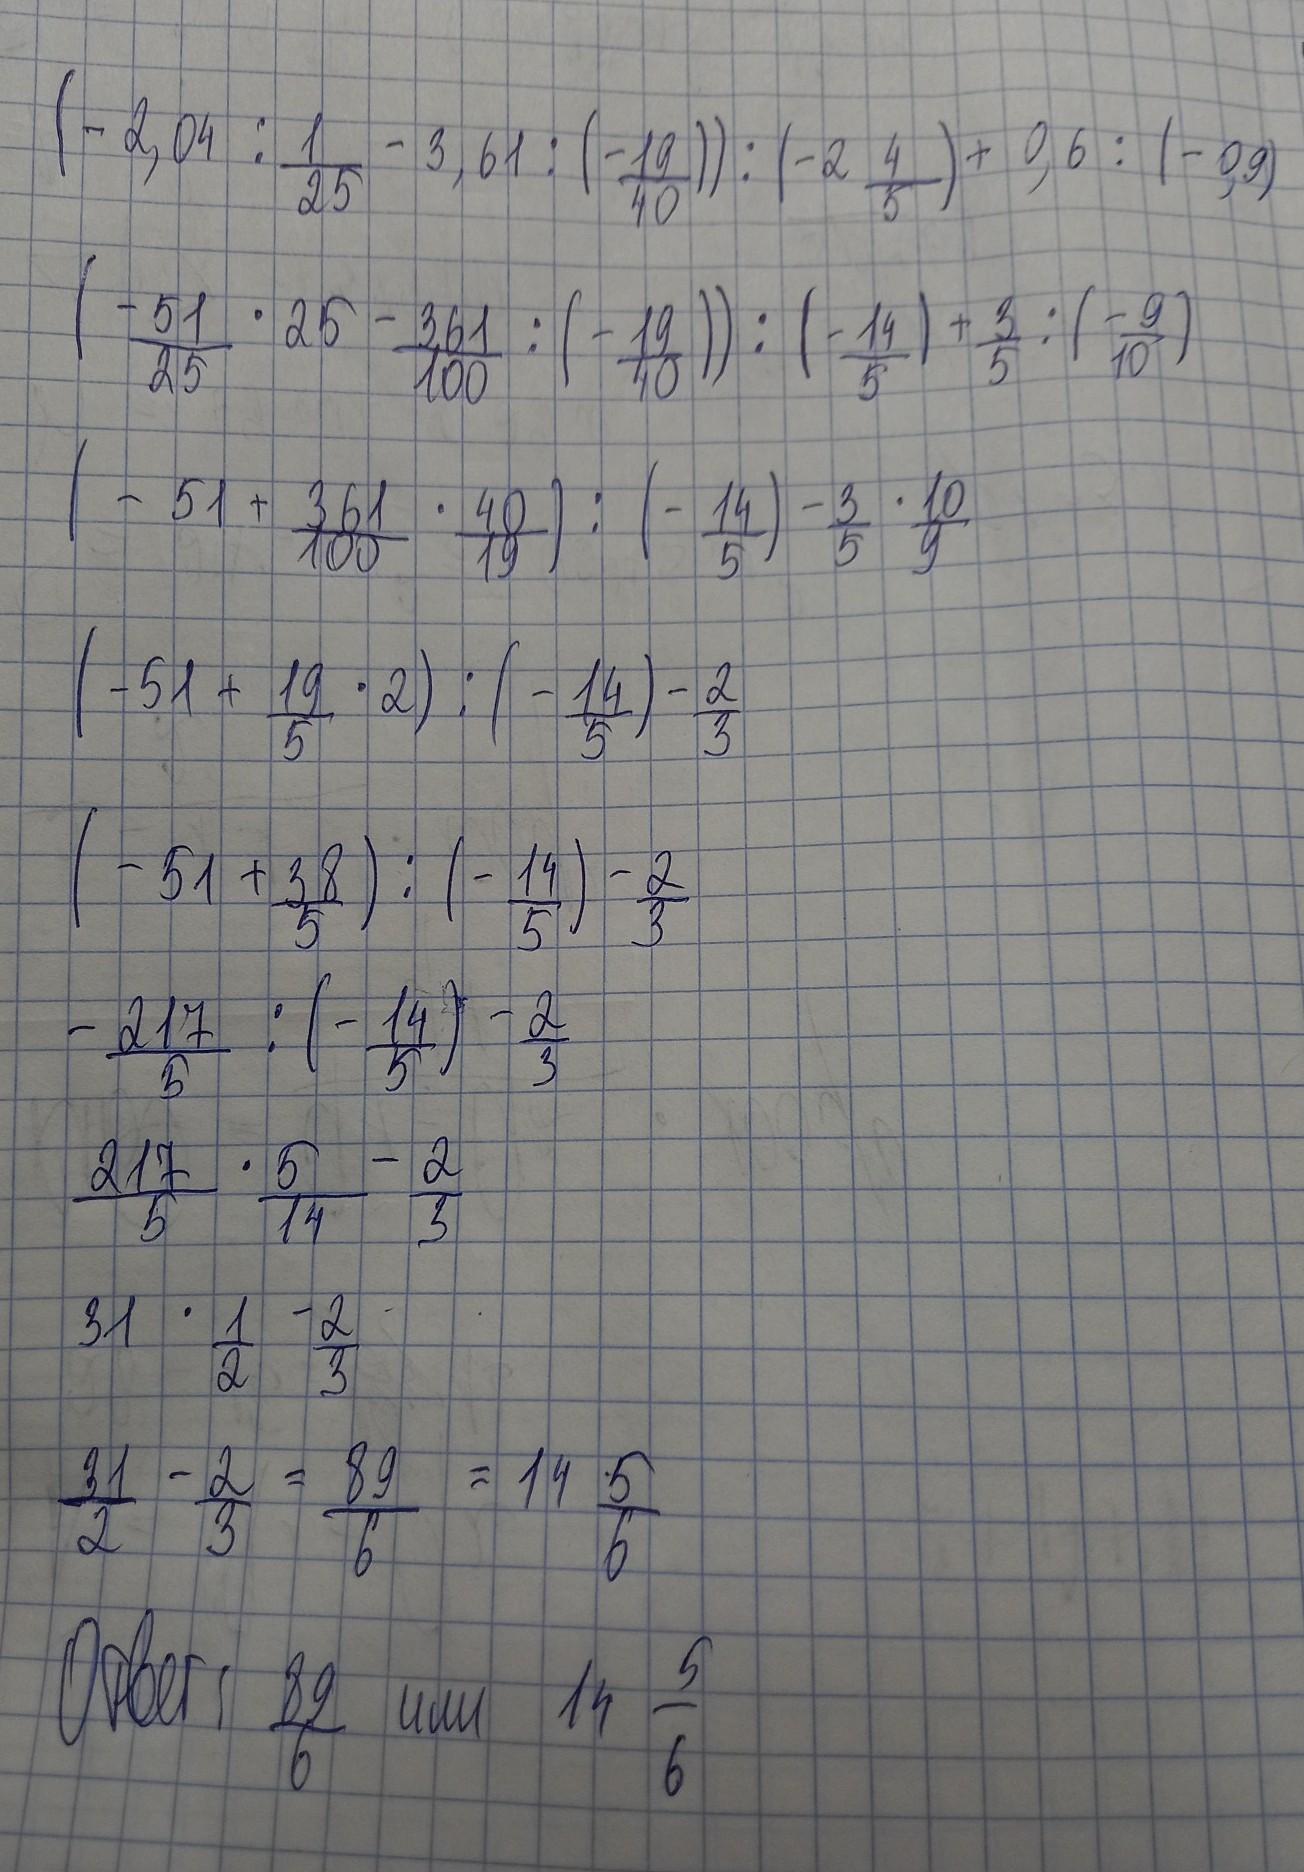 (-2,04 : 1/25 - 3,61 : (-19/40)) : (-2 4/5) + 0,6 : (-0,9)
(-51/25 · 25 - 361/100 : (-19/40)) : (-14/5) + 3/5 : (-9/10)
(-51 + 361/100 · 40/19) : (-14/5) - 3/5 · 10/9
(-51 + 19/5 · 2) : (-14/5) - 2/3
(-51 + 38/5) : (-14/5) - 2/3
-217/5 : (-14/5) - 2/3
217/5 · 5/14 - 2/3
31 · 1/2 - 2/3
31/2 - 2/3 = 89/6 = 14 5/6
Ответ: 89/6 или 14 5/6